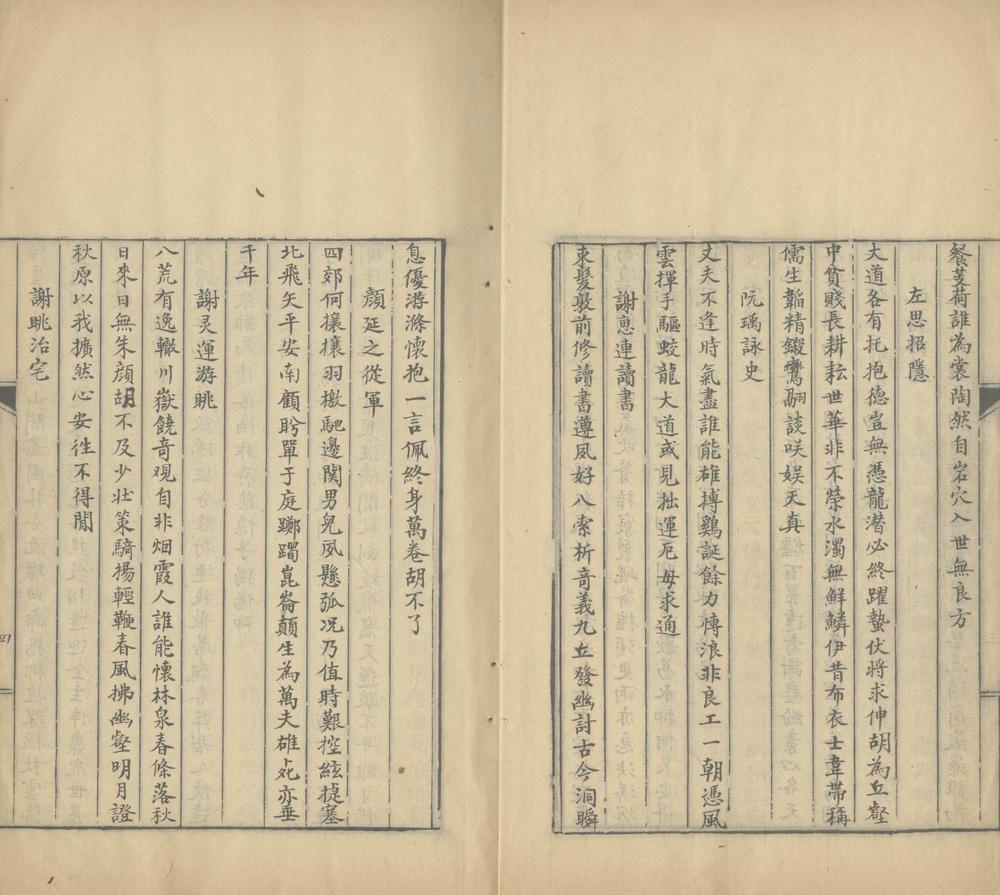 餐芰荷誰為裳陶然自岩穴入世無良方
左思招隱
大道各有托抱德豈無憑龍潛必終躍蟄伏將求伸胡為丘壑
中貧賤長耕耘世華非不榮水濁無鮮鱗伊昔布衣士韋帶稱
儒生韜精鍛鸞翮談咲娱天真
阮瑀詠史
丈夫不逢時氣盡誰能雄搏鷄誕餘力慱浪非良工一朝憑風
雲揮手驅蛟龍大道或見拙運厄毋求通
謝惠連讀書
束髮敦前修讀書遵夙好八索析竒義九丘發幽討古今洞瞬
息優游滌懷抱一言佩終身萬卷胡不了
顔延之從軍
四郊何攘攘羽檄馳邊関男兒夙懸弧况乃值時艱控絃捷塞
北飛矢平安南顧盻單于庭躑躅崑崙顛生為萬夫雄死亦垂
千年
謝灵運游眺
八荒有逸轍川嶽饒竒观自非烟霞人誰能懷林泉春條落秋
日來日無朱顔胡不及少壯策騎揚輕鞭春風拂幽壑明月證
秋原以我擴然心安徃不得閒
謝眺治宅
四